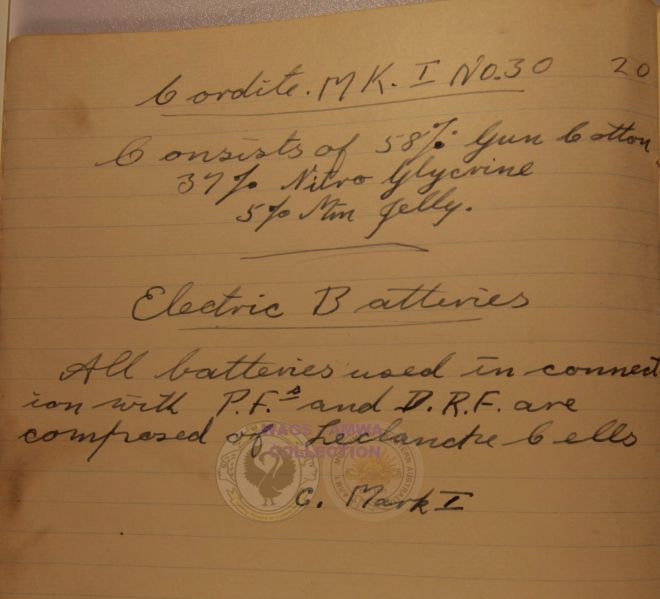 20
Cordite. MK. I No. 30
Consists of 58% Gun Cotton
37% Nitro Glycerine
5% Min Jelly.
Electric Batteries
All batteries used in connect
ion with P.F.s and D.R.F. are
composed of Leclanche Cells
C. Mark I
MAGS TAMWA
COLLECTION